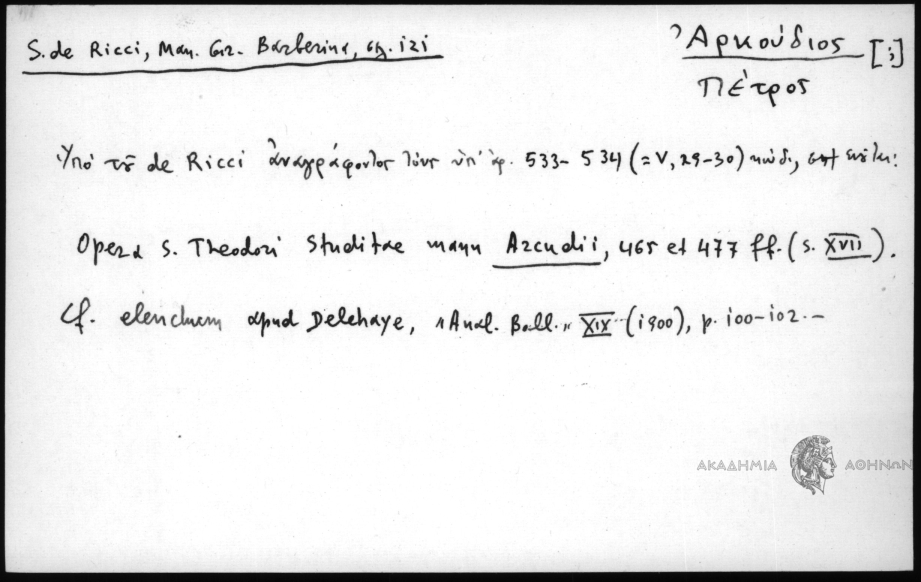 S. de Ricci, Man. Gr. Barberina, σελ. 121
Ἀρκούδιος [;]
Πέτρος
Ὑπὸ τοῦ de Ricci ἀναγράφονται τοὺς ὑπ' ἀρ. 533-534 (=V, 29-30) κώδ.,
Opera S. Theodori Studitae manu Arcudii, 465 et 477 ff. (s. XVII).
Cf. elenchum apud Delehaye, «Anal. Boll.» XIX (1900), p. 100-102.-
ΑΚΑΔΗΜΙΑ ΑΘΗΝΩΝ